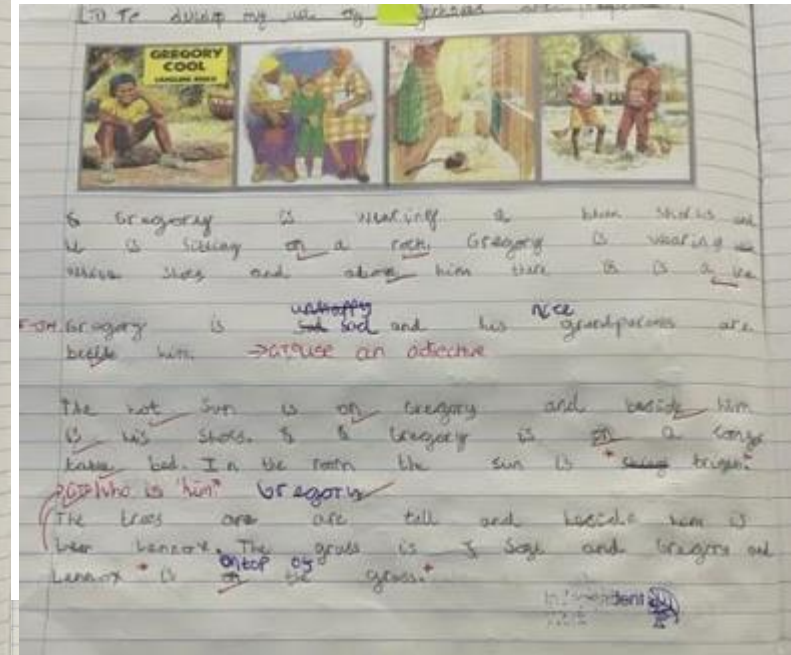 L.O To develop my use of
GREGORY
COOL
CAROLINE BINCH
Gregory is wearing a shorts and
is sitting on a rock. Gregory is wearing
shoes and above him there is is a
unhappy nice
Gregory is sad sad and his grandparents are
beside him. → GT: use an adjective
The hot sun is on Gregory and beside him
is his shoes. Gregory is on a
bed. In the room the sun is bright.
→ GT: Who is "him" Gregory
The trees are are tall and beside him is
Lennox. The grass is and Gregory and
on top of
Lennox * is on the grass. *
Independent